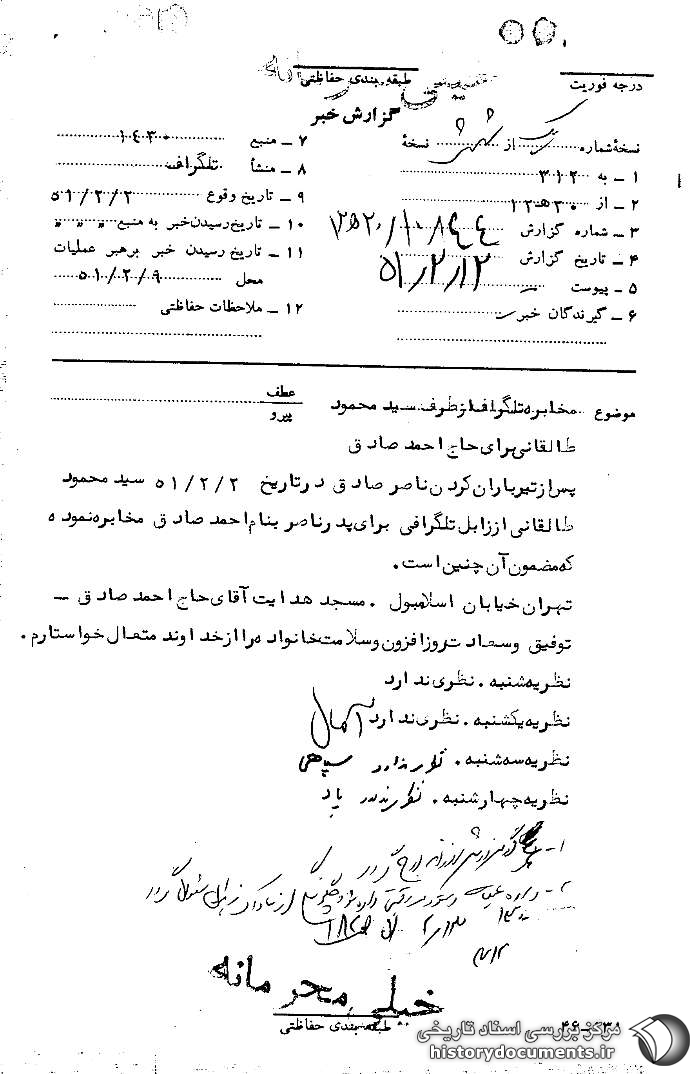 درجه فوریت
طبقه بندی حفاظتی
گزارش خبر
نسخهٔ شماره یک از شش نسخهٔ
۱ ــ به ۳۱۲
۲ ــ از ۱۲ ه ۳۰
۳ ــ شماره گزارش
۴ ــ تاریخ گزارش ۵۱/۲/۱۲
۵ ــ پیوست
۶ ــ گیرندگان خبر
۷ ــ منبع ۱۴۳۰
۸ ــ منشأ تلگراف
۹ ــ تاریخ وقوع ۵۱/۲/۲
۱۰ ــ تاریخ رسیدن خبر به منبع " " "
۱۱ ــ تاریخ رسیدن خبر برهبر عملیات
محل ۵۱/۲/۹
۱۲ ــ ملاحظات حفاظتی
عطف
پیرو
موضوع مخابره تلگراف از طرف سید محمود
طالقانی برای حاج احمد صادق
پس از تیرباران کردن ناصر صادق در تاریخ ۵۱/۲/۲ سید محمود
طالقانی از زابل تلگرافی برای پدر ناصر بنام احمد صادق مخابره نموده
که مضمون آن چنین است.
تهران خیابان اسلامبول . مسجد هدایت آقای حاج احمد صادق ــ
توفیق وسعادت روزافزون وسلامت خانواده را از خداوند متعال خواستارم.
نظریه شنبه . نظری ندارد
نظریه یکشنبه . نظری ندارد
نظریه سه شنبه . نظری ندارد
نظریه چهارشنبه . نظری ندارد
خیلی محرمانه
طبقه بندی حفاظتی
مرکز بررسی اسناد تاریخی
historydocuments.ir